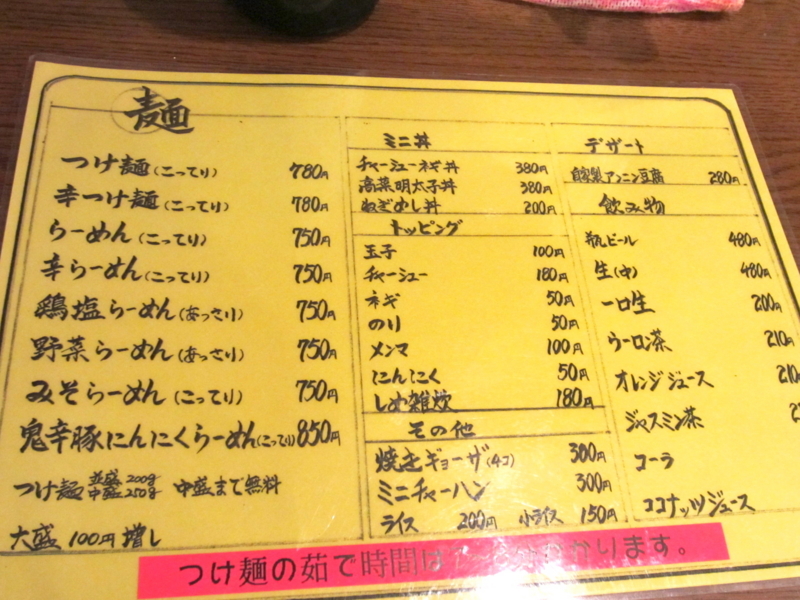 麺
つけ麺(こってり) 780円
辛つけ麺(こってり) 780円
らーめん(こってり) 750円
辛らーめん(こってり) 750円
鶏塩らーめん(あっさり) 750円
野菜らーめん(あっさり) 750円
みそらーめん(こってり) 750円
鬼辛豚にんにくらーめん(こってり) 850円
つけ麺 並盛200g 中盛250g 中盛まで無料
大盛 100円増し
ミニ丼
チャーシューネギ丼 380円
高菜明太子丼 380円
ねぎめし丼 200円
トッピング
玉子 100円
チャーシュー 180円
ネギ 50円
のり 50円
メンマ 100円
にんにく 50円
しめ雑炊 180円
その他
焼きギョーザ(4コ) 300円
ミニチャーハン 300円
ライス 200円 小ライス 150円
デザート
自家製アンニン豆腐 280円
飲み物
瓶ビール 480円
生(中) 480円
一口生 200円
ウーロン茶 210円
オレンジジュース 210
ジャスミン茶
コーラ
ココナッツジュース
つけ麺の茹で時間は かります。